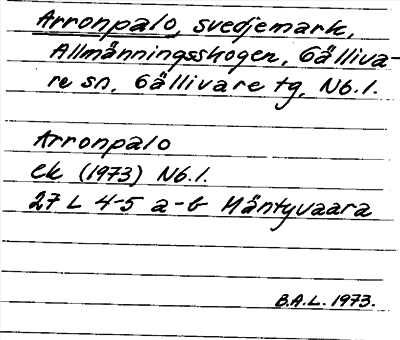 Arronpalo, svedjemark,
Allmänningsskogen, Gälliva-
re sn, Gällivare tg, Nb.l.
Arronpalo
ek (1973) Nb.l.
27 L 4-5 a-b Mäntyvaara
B.A.L. 1973.